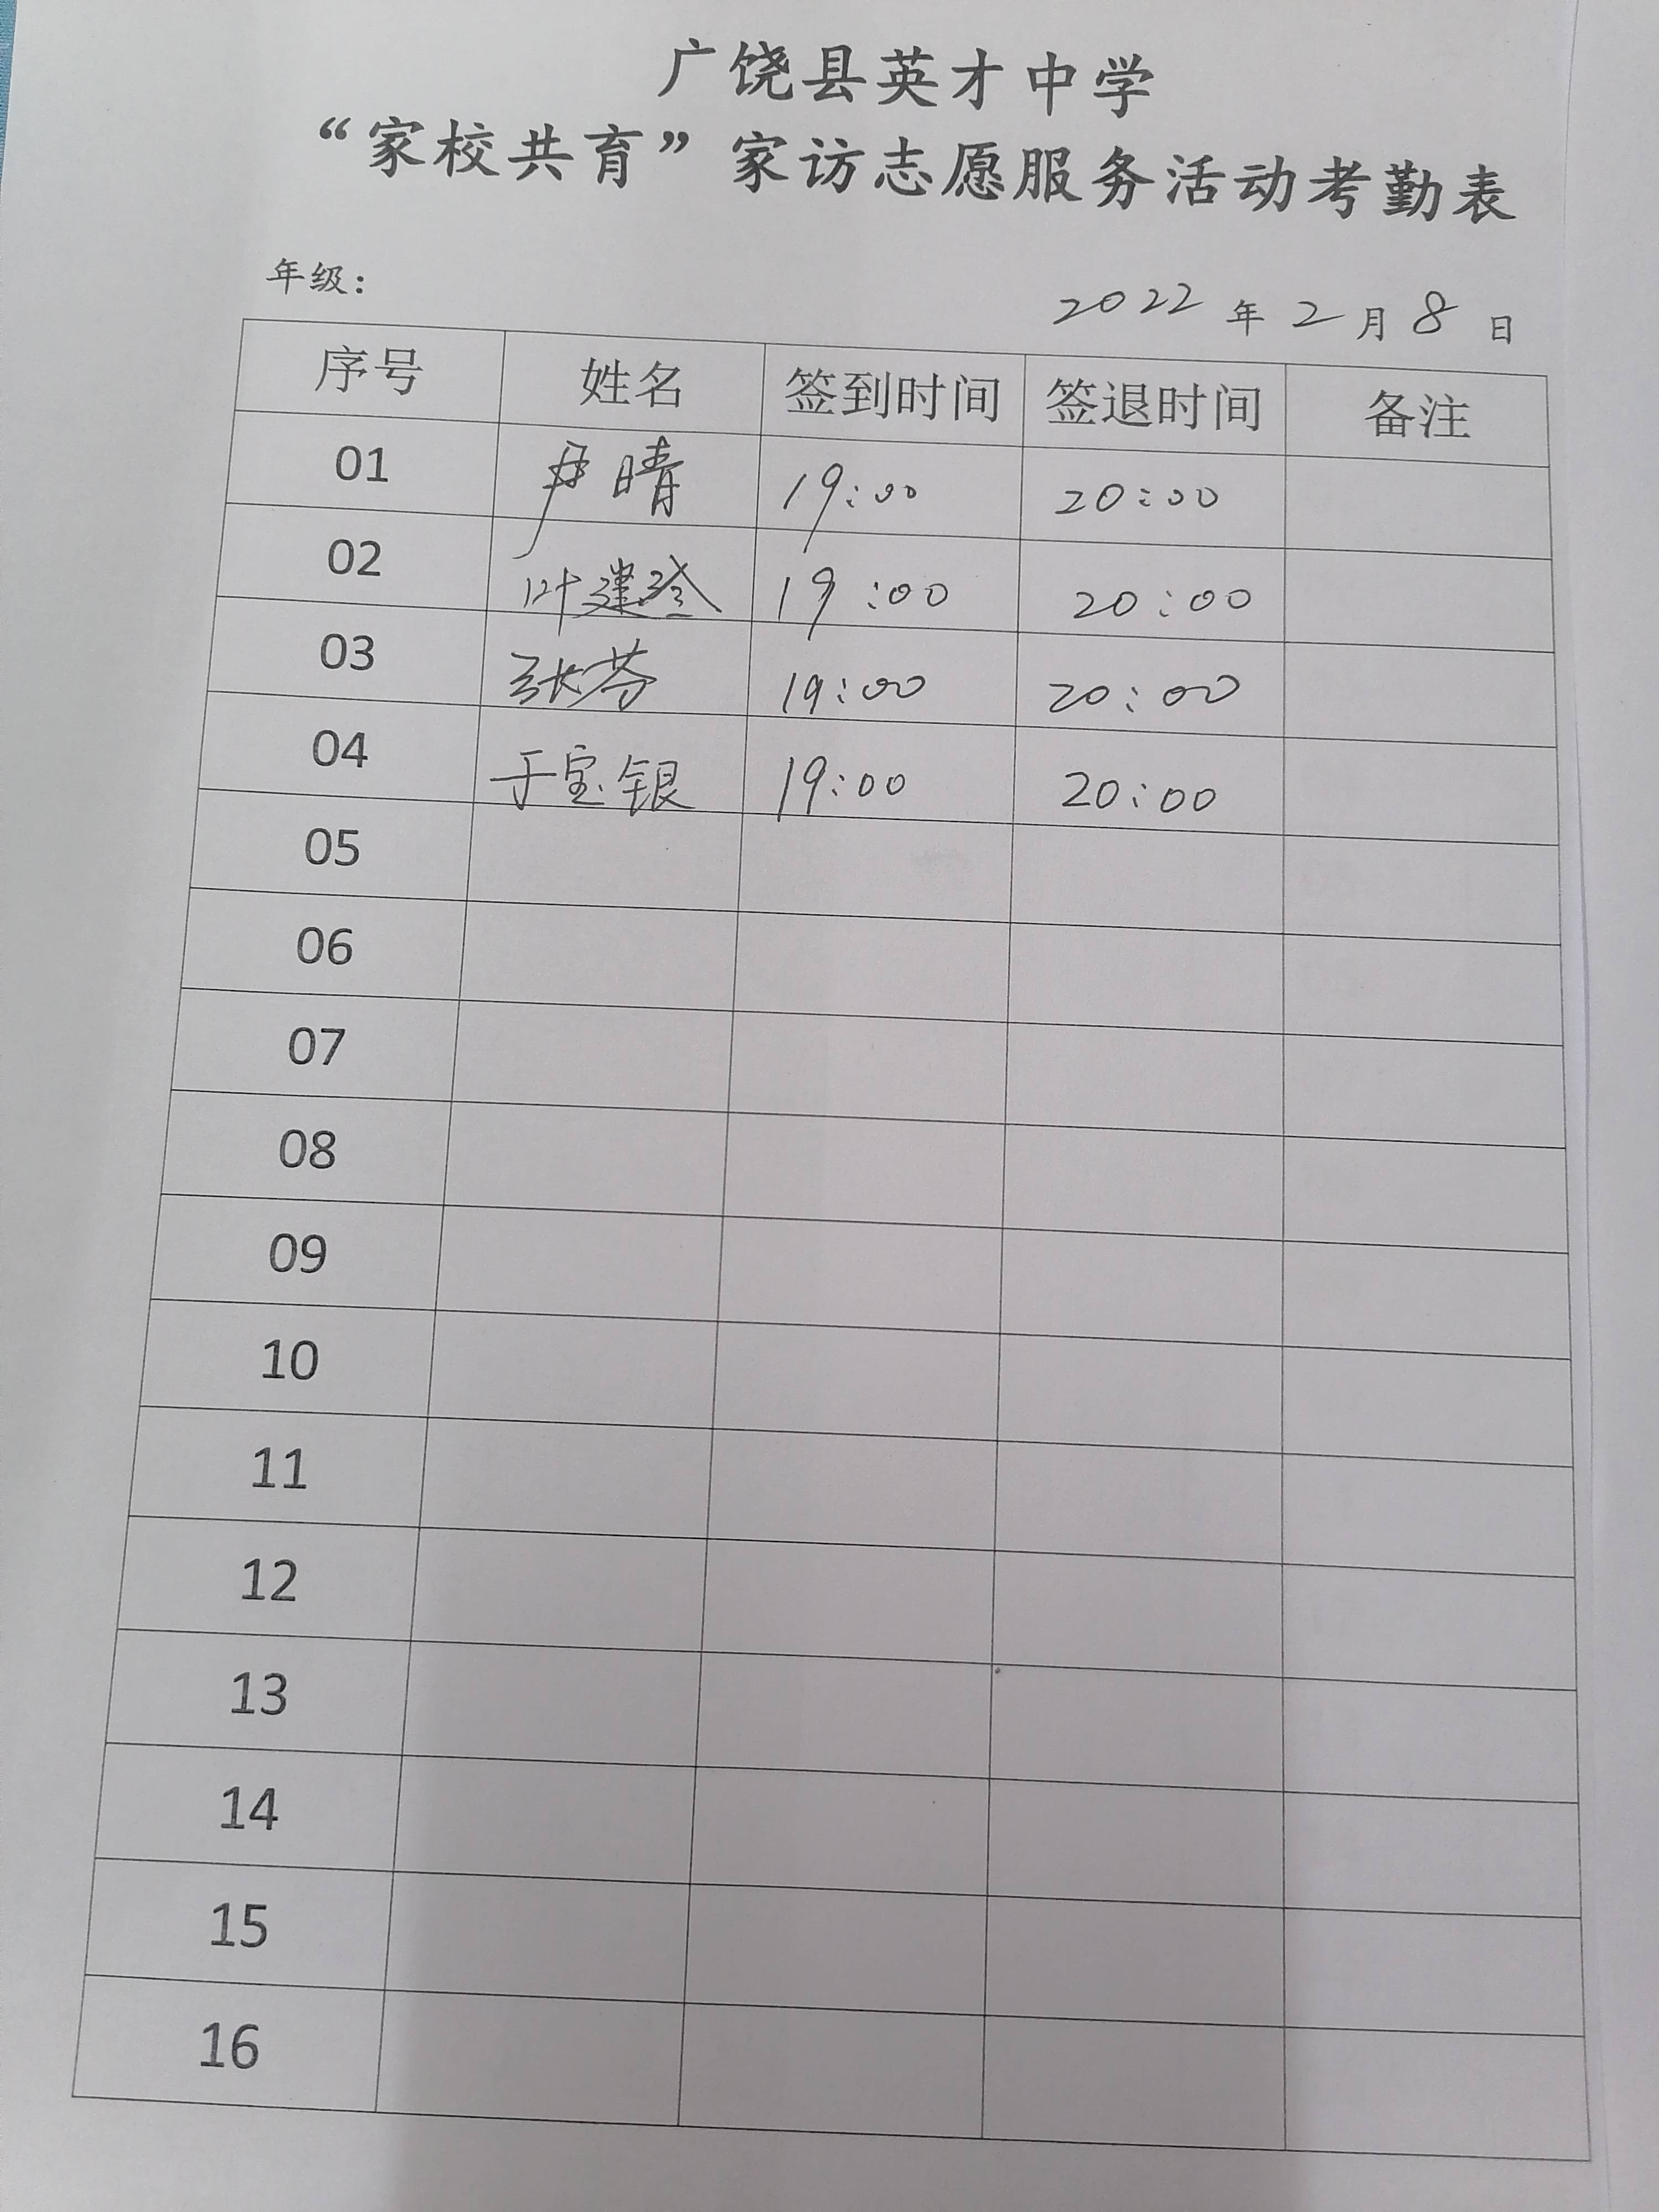 广饶县英才中学
“家校共育”家访志愿服务活动考勤表
年级：
2022 年 2 月 8 日
序号 姓名 签到时间 签退时间 备注
01 尹晴 19:00 20:00
02 叶建 19:00 20:00
03 张芬 19:00 20:00
04 于宝银 19:00 20:00
05
06
07
08
09
10
11
12
13
14
15
16